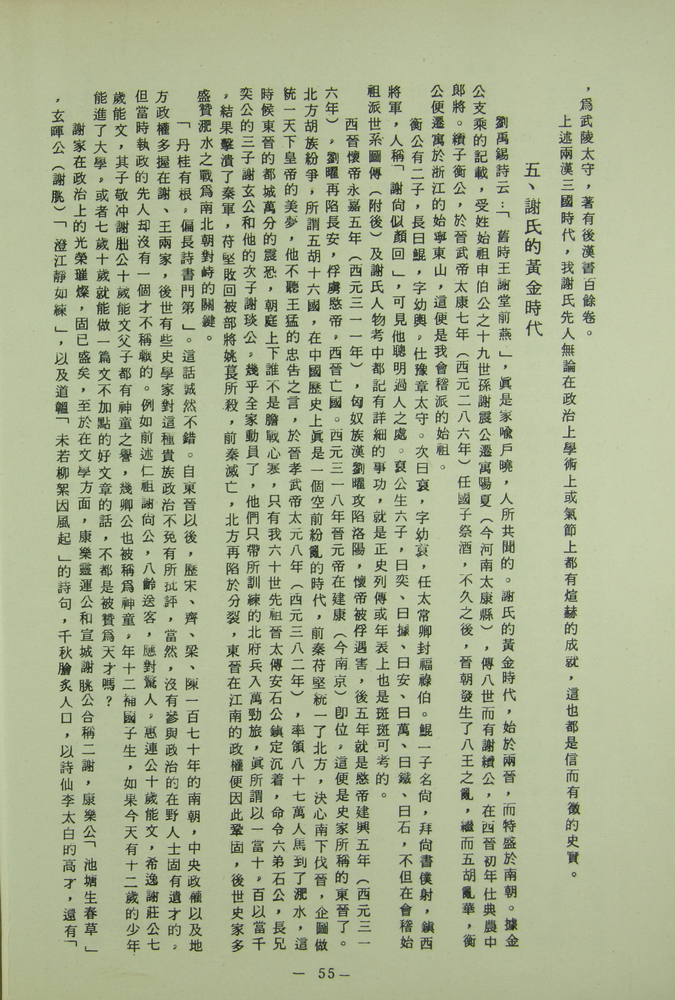 ，爲武陵太守，著有後漢書百餘卷。
上述兩漢三國時代，我謝氏先人無論在政治上學術上或氣節上都有煊赫的成就，這也都是信而有徵的史實。
五、謝氏的黃金時代
劉禹錫詩云：「舊時王謝堂前燕」，眞是家喩戶曉，人所共聞的。謝氏的黃金時代，始於兩晉，而特盛於南朝。據金
公支乘的記載，受姓始祖申伯公之十九世孫謝震公遷寓陽夏（今河南太康縣），傳八世而有謝纘公，在西晉初年仕典農中
郎將。纘子衡公，於晉武帝太康七年（西元二八六年）任國子祭酒，不久之後，晉朝發生了八王之亂，繼而五胡亂華，衡
公便遷寓於浙江的始寧東山，這便是我會稽派的始祖。
衡公有二子，長曰鯤，字幼輿。仕豫章太守。次曰裒，字幼裒，任太常卿封福祿伯。鯤一子名尙，拜尙書僕射，鎭西
將軍，人稱「謝尙似顏回」，可見他聰明過人之處。裒公生六子，曰奕、曰據、曰安、曰萬、曰鐵、曰石，不但在會稽始
祖派世系圖傳（附後）及謝氏人物考中都記有詳細的事功，就是正史列傳或年表上也是斑斑可考的。
西晉懷帝永嘉五年（西元三一一年），匈奴族漢劉曜攻陷洛陽，懷帝被俘遇害，後五年就是愍帝建興五年（西元三一
六年），劉曜再陷長安，俘虜愍帝，西晉亡國。西元三一八年晉元帝在建康（今南京）卽位。這便是史家所稱的東晉了。
北方胡族紛爭，所謂五胡十六國，在中國歷史上眞是一個空前紛亂的時代，前秦苻堅統一了北方，決心南下伐晉，企圖做
統一天下皇帝的美夢，他不聽王猛的忠告之言，於晉孝武帝太元八年（西元三八二年），率領八十七萬人馬到了淝水，這
時候東晉的都城萬分的震恐，朝庭上下誰不是膽戰心寒，只有我六十世先祖晉太傅安石公鎭定沉着，命令六弟石公，長兄
奕公的三子謝玄公和他的次子謝琰公。幾乎全家動員了，他們只帶所訓練的北府兵入萬勁旅，眞所謂以一當十。百以當千
，結果擊潰了秦軍，苻堅敗回被部將姚萇所殺，前秦滅亡，北方再陷於分裂，東晉在江南的政權便因此鞏固，後世史家多
盛贊淝水之戰爲南北朝對峙的關鍵。
「丹桂有根，偏長詩書門第」。這話誠然不錯。自東晉以後，歷宋、齊、梁、陳一百七十年的南朝，中央政權以及地
方政權多握在謝、王兩家，後世有些史學家對這種貴族政治不免有所批評，當然，沒有參與政治的在野人士固有遺才的。
但當時執政的先人却沒有一個才不稱職的。例如前述仁祖謝尙公，八齡送客，應對驚人。惠連公十歲能文，希逸謝莊公七
歲能文，其子敬冲謝朏公十歲能文父子都有神童之譽，幾卿公也被稱爲神童。年十二補國子生，如果今天有十二歲的少年
能進了大學。或者七歲十歲就能做一篇文不加點的好文章的話，不都是被贊爲天才嗎？
謝家在政治上的光榮璀燦，固已盛矣，至於在文學方面，康樂靈運公和宣城謝脁公合稱二謝，康樂公「池塘生春草」
，玄暉公（謝脁）「澄江靜如練」，以及道韞「未若柳絮因風起」的詩句，千秋膾炙人口，以詩仙李太白的高才，還有「
— 55 —